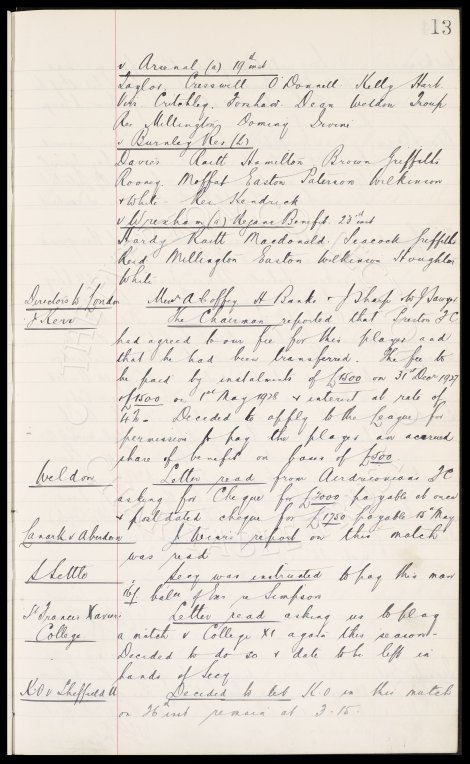 13
v Arsenal (a) 19th inst
Taylor, Cresswell O'Donnell. Kelly Hart.
Virr Critchley. Forshaw. Dean Weldon Troup
Res Millington Dominy Irvine
v Burnley Res (h)
Davies Raitt Hamilton Brown Griffiths
Rooney. Moffat Easton Paterson Wilkinson
& White Res Kendrick
v Wrexham (a) Regans Benefit. 23rd inst
Hardy Raitt Macdonald. Peacock Griffiths
Reid Millington Easton Wilkinson Houghton
White
Directors to London Messrs A Coffey H Banks & J Sharp & W J Sawyer
J Kerr The Chairman reported that Preston FC
had agreed to our fee for this player and
that he had been transferred. The fee to
be paid by instalments of £1500 on 31st Decr 1927
£1500 on 1st May 1928 & interest at rate of
4%. Decided to apply to the League for
permission to pay the player an accrued
share of benefit on basis of £500
Weldon Letter read from Airdrieonians FC
asking for Cheque for £2000 payable at once
& postdated cheque for £1750 payable 15th May
Lanark v Aberdeen report on this match
was read
S Settle Secy was instructed to pay this man
16/- balce of Exs re Simpson
St Francis Xaviers Letter read asking us to play
College a match v College XI again this season.
Decided to do so & date to be left in
hands of Secy
KO v Sheffield U Decided to let KO in this match
on 26th inst remain at 3-15.